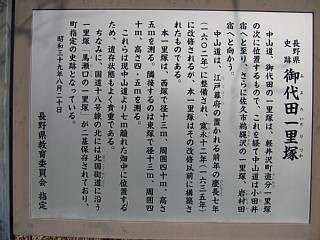 長野県
史跡 御代田一里塚
中山道、御代田の一里塚は、軽井沢町追分一里塚
の次に位置するもので、これを経て中山道は小田井
宿へと至り、さらに佐久市鵜縄沢の一里塚、岩村田
宿へと向かう。
中山道は、江戸幕府の置かれる前年の慶長七年
(一六〇二)に整備され、寛永十二年(一六三五年)
に改修されるが、本一里塚はその改修以前に構築さ
れたものである。
本一里塚は、西塚で径十三m、周囲四十m、高さ
五mを測る。隣接するのは東塚で径十三m、周囲四
十m、高さ四・五mを測る。
これらは現中山道より七m離れた畑中に位置する
ため、遺存状態もよく貴重である。
ちなみに、国道十八号線の北には北国街道に沿う
一里塚「馬瀬口の一里塚」が二基保存されており、
町指定の史跡となっている。
昭和三十九年八月二十日
長野県教育委員会 指定